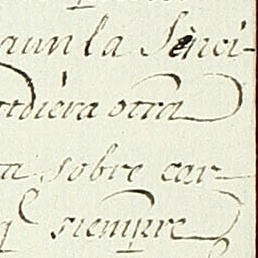 aun la Senci-
ndiera otra
ta sobre car-
q siempre